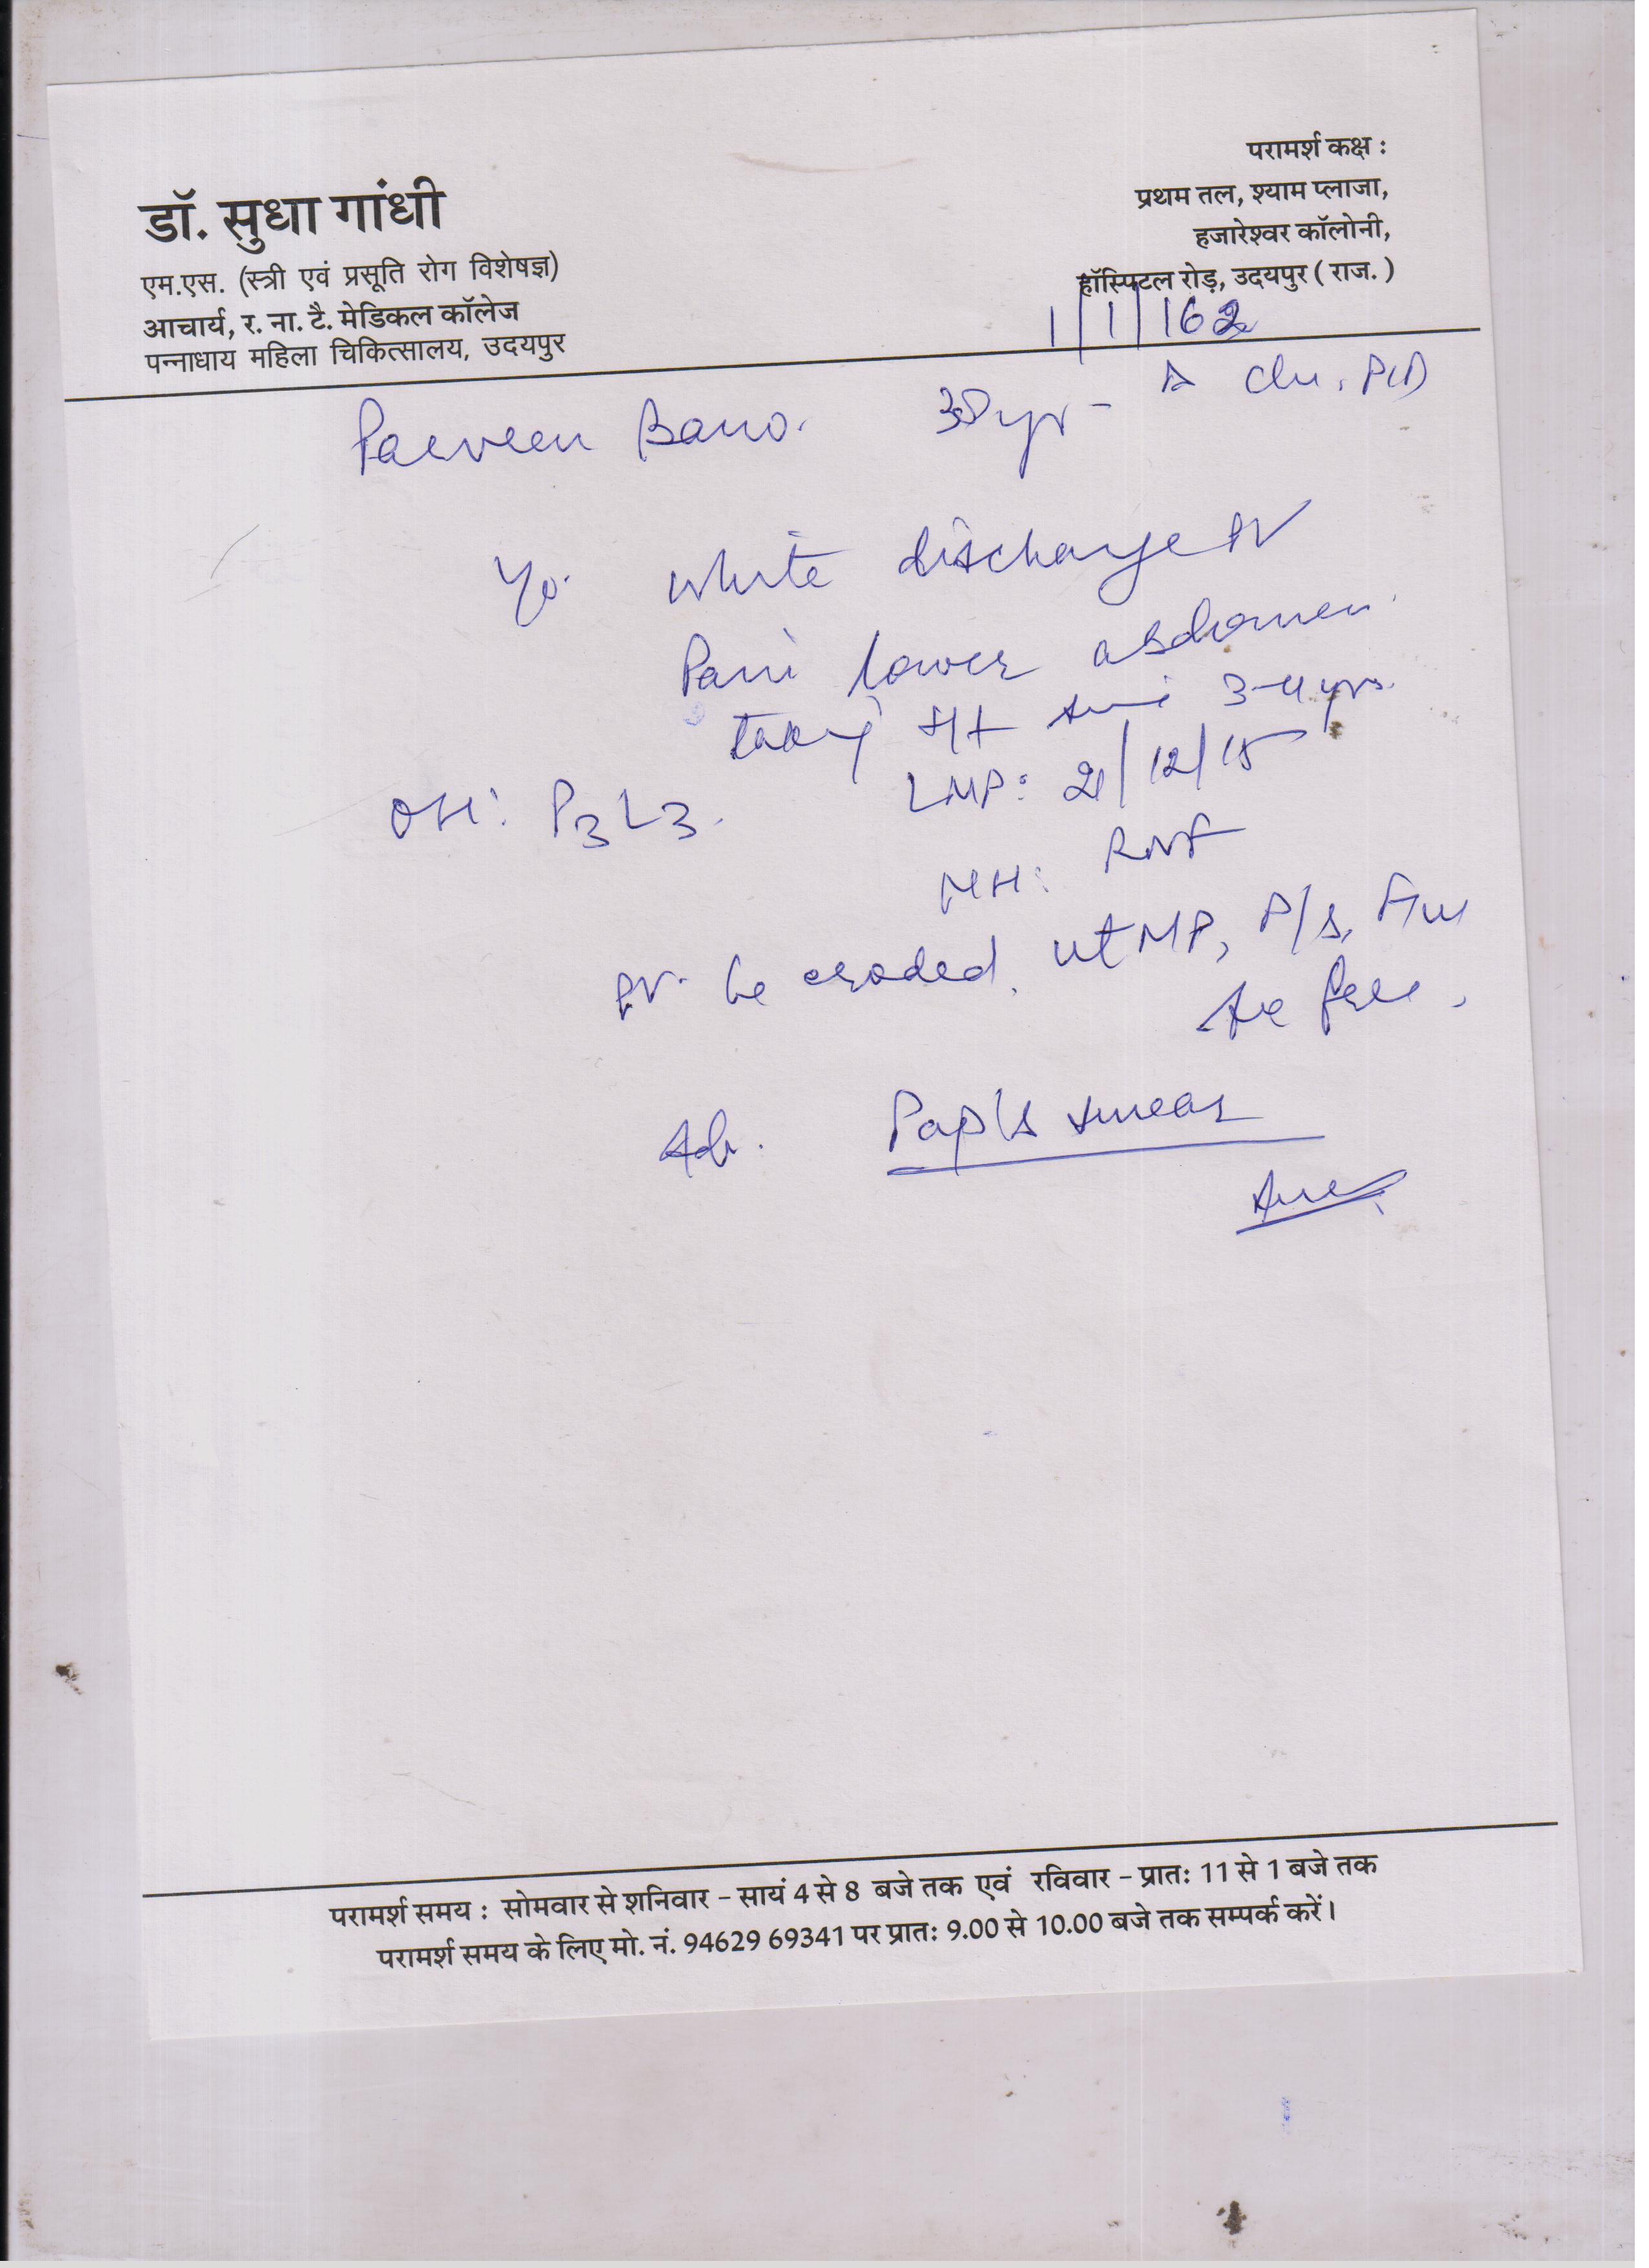 डॉ. सुधा गांधी
एम.एस. (स्त्री एवं प्रसूति रोग विशेषज्ञ)
आचार्य, र. ना. टै. मेडिकल कॉलेज
पन्नाधाय महिला चिकित्सालय, उदयपुर
परामर्श कक्ष :
प्रथम तल, श्याम प्लाजा,
हजारेश्वर कॉलोनी,
हॉस्पिटल रोड़, उदयपुर ( राज. )
1/1/16
Parveen Bano. yr - Δ Chr. PID
c/o. white discharge PV
Pain lower abdomen.
taking t/t since 3-4 yrs.
LMP: 21/12/15
OH: P3L3.
MH: RNF
PV. Cx eroded, ut MP, N/S, F/M
Fx free.
Adv. Pap's smear
परामर्श समय : सोमवार से शनिवार - सायं 4 से 8 बजे तक एवं रविवार - प्रात: 11 से 1 बजे तक
परामर्श समय के लिए मो. नं. 94629 69341 पर प्रात: 9.00 से 10.00 बजे तक सम्पर्क करें।